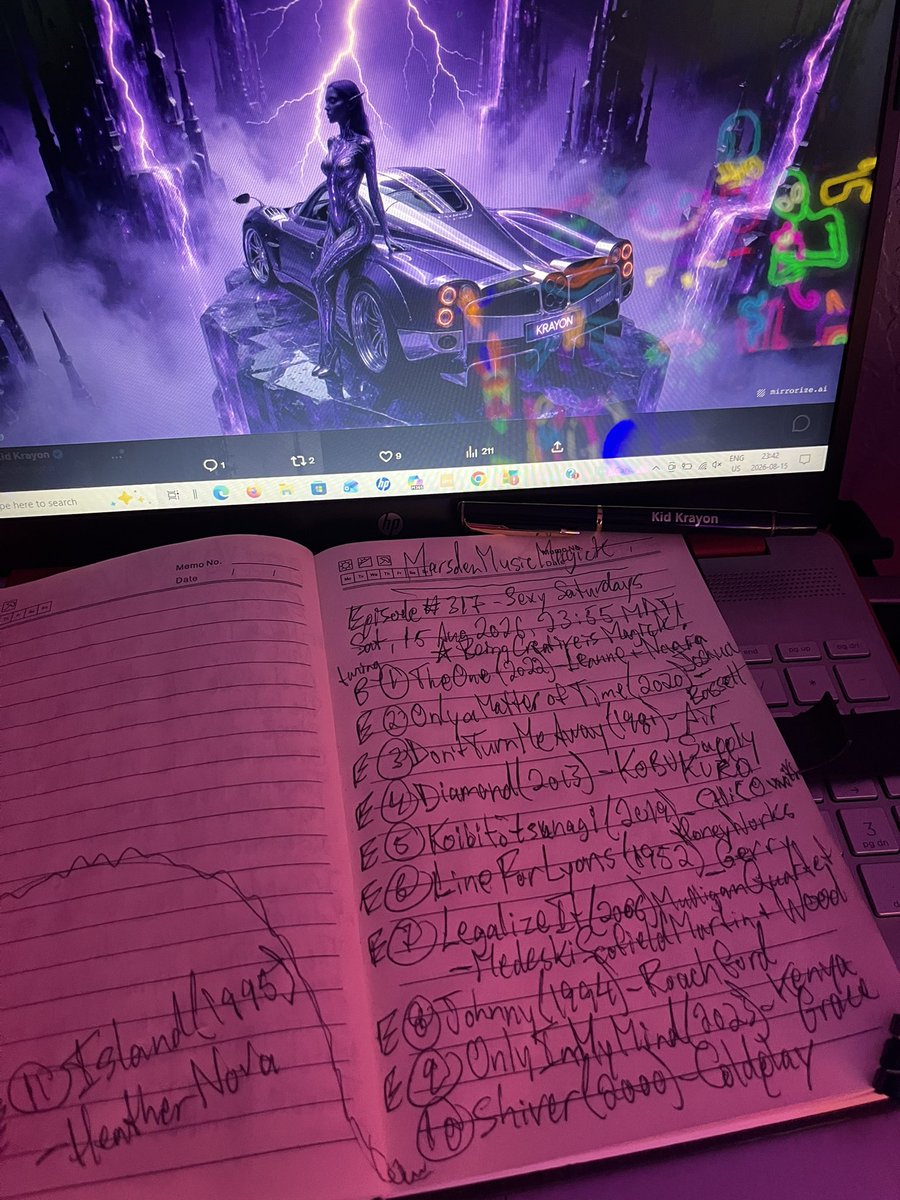 KRAYON
mirrorize.ai
Kid Krayon
1
2
9
211
pe here to search
ENG
US
23:42
2026-08-15
hp
Kid Krayon
Memo No.
Date / /
Memo No.
Date
MarsdenMusicMagick
Episode #317-Sexy Saturdays
Sat, 15 Aug 2026, 23:55
★ Being Creative is Magick!
tuning
B ① The One (2022) Leanne + Naara
E ② Only a Matter of Time (2020) - Joshua Bassett
E ③ Don't Turn Me Away (1981) - Air Supply
E ④ Diamond (2013) - KOBUKURO
E ⑤ Koibito Tsunagi (2019) - CHiCO with HoneyWorks
E ⑥ Line For Lyons (1952) - Gerry Mulligan Quartet
E ⑦ Legalize It (2006)
- Medeski Scofield Martin + Wood
E ⑧ Johnny (1994) - Roachford
E ⑨ Only In My Mind (2023) - Kenya Grace
⑩ Shiver (2000) - Coldplay
E ⑪ Island (1995)
- Heather Nova
end
pg up
pg dn
3
pg dn